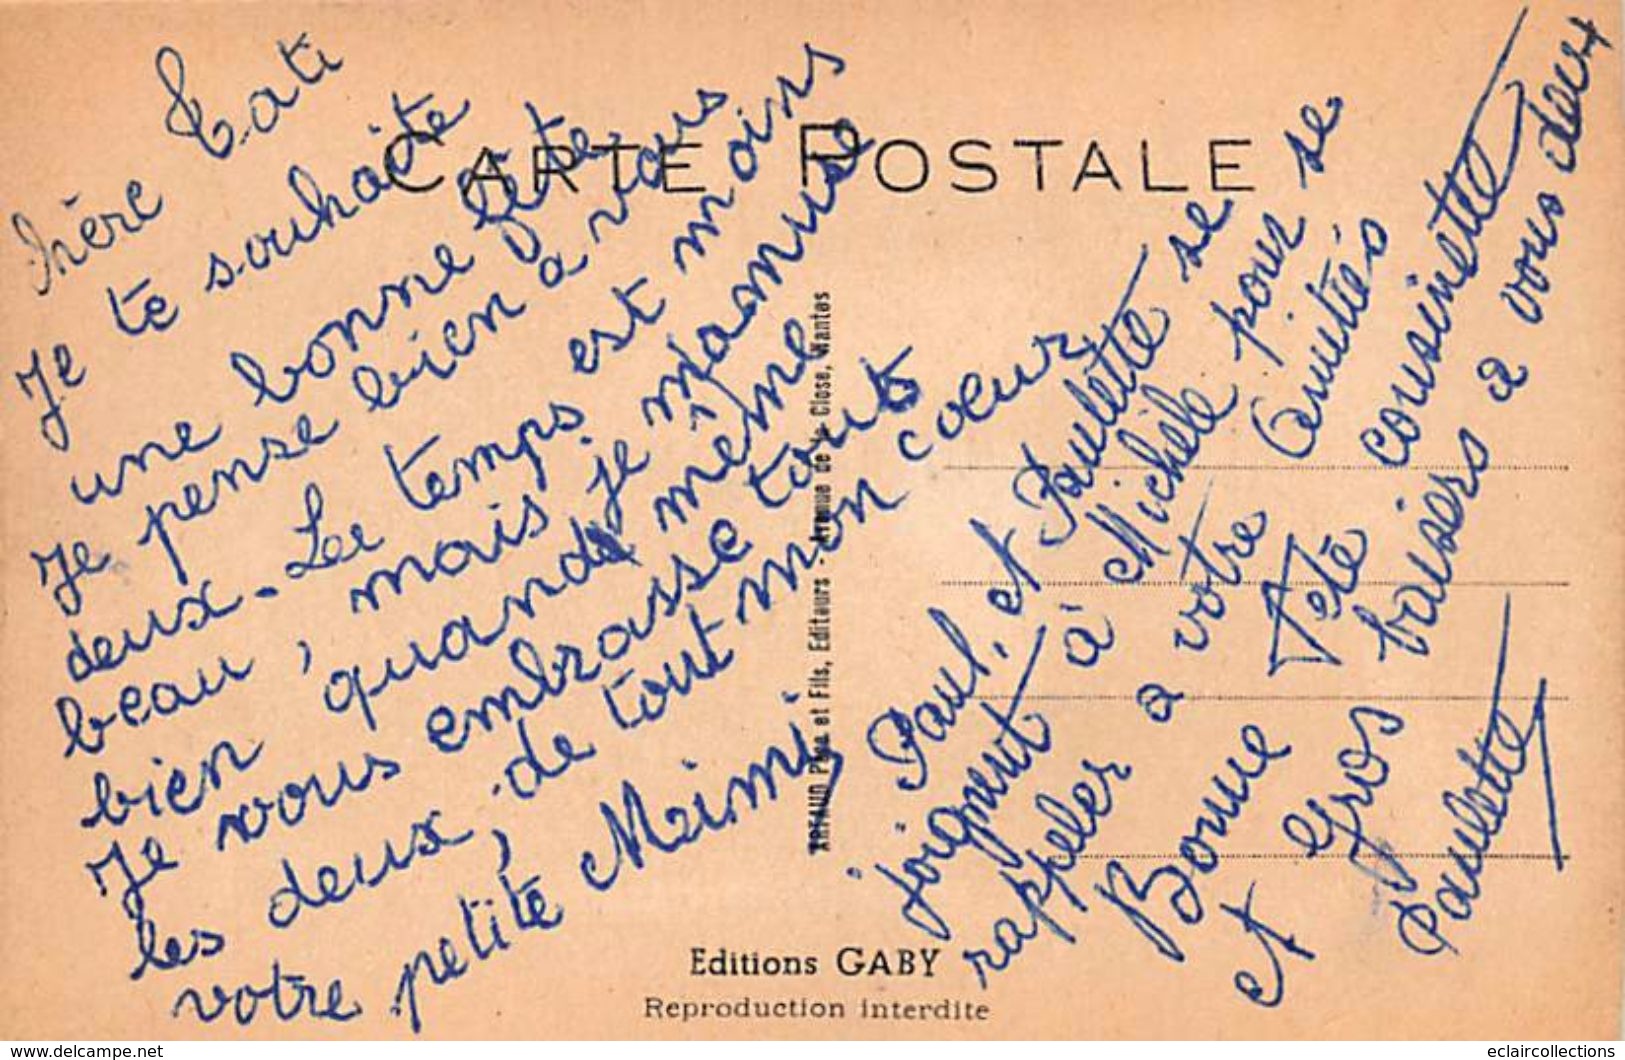 CARTE POSTALE
hère Tati
Je te souhaite
une bonne fête
Je pense bien a vous
deux. Le temps est moins
beau, mais je m'amuse
bien quand même
Je vous embrasse tout
les deux, de tout mon coeur
votre petite Meimi
Paul, et Paulette se
joignent à Michèle pour se
rappeler a votre Amitiés
Bonne Fête cousinette
et gros baisers a vous deux
Paulette
ARTAUD Père et Fils, Editeurs - Avenue de la Close, Nantes
Editions GABY
Reproduction interdite
www.delcampe.net
eclaircollections